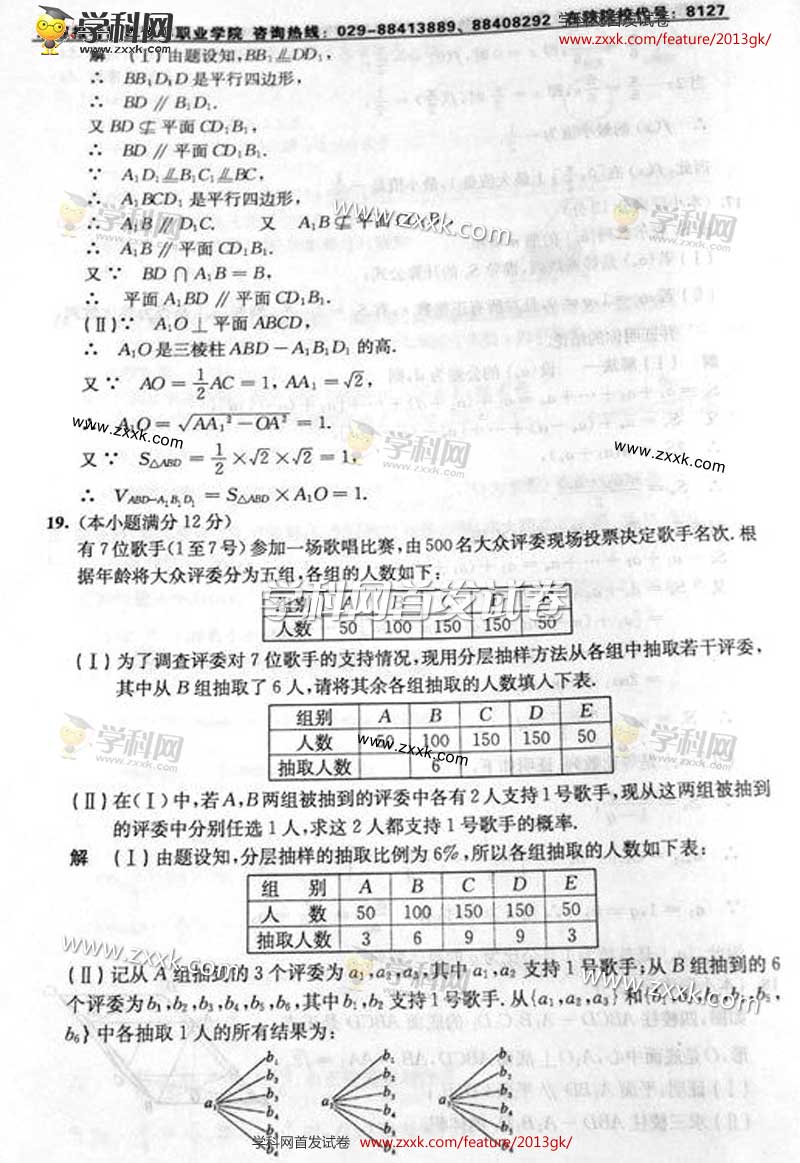 职业学院 咨询热线：029-88413889、88408292 在陕院校代号：8127
学科网首发试卷
www.zxxk.com/feature/2013gk/
解 (Ⅰ)由题设知，BB₁∥DD₁，
∴ BB₁D₁D是平行四边形，
∴ BD∥B₁D₁.
又BD⊄平面CD₁B₁，
∴ BD∥平面CD₁B₁.
∵ A₁D₁∥B₁C₁∥BC，
∴ A₁BCD₁是平行四边形，
∴ A₁B∥D₁C. 又 A₁B⊄平面CD₁B₁，
∴ A₁B∥平面CD₁B₁.
又∵ BD∩A₁B=B，
∴ 平面A₁BD∥平面CD₁B₁.
(Ⅱ)∵ A₁O⊥平面ABCD，
∴ A₁O是三棱柱ABD－A₁B₁D₁的高.
又∵ AO=1/2AC=1，AA₁=√2，
∴ A₁O=√(AA₁²－OA²)=1.
又∵ S△ABD=1/2×√2×√2=1，
∴ V_ABD-A₁B₁D₁=S△ABD×A₁O=1.
19.(本小题满分12分)
有7位歌手(1至7号)参加一场歌唱比赛，由500名大众评委现场投票决定歌手名次.根
据年龄将大众评委分为五组，各组的人数如下：
组别 A B C D E
人数 50 100 150 150 50
(Ⅰ)为了调查评委对7位歌手的支持情况，现用分层抽样方法从各组中抽取若干评委，
其中从B组抽取了6人，请将其余各组抽取的人数填入下表.
组别 A B C D E
人数 50 100 150 150 50
抽取人数 6
(Ⅱ)在(Ⅰ)中，若A，B两组被抽到的评委中各有2人支持1号歌手，现从这两组被抽到
的评委中分别任选1人，求这2人都支持1号歌手的概率.
解 (Ⅰ)由题设知，分层抽样的抽取比例为6%，所以各组抽取的人数如下表：
组 别 A B C D E
人 数 50 100 150 150 50
抽取人数 3 6 9 9 3
(Ⅱ)记从A组抽到的3个评委为a₁，a₂，a₃，其中a₁，a₂支持1号歌手；从B组抽到的6
个评委为b₁，b₂，b₃，b₄，b₅，b₆，其中b₁，b₂支持1号歌手.从{a₁，a₂，a₃}和{b₁，b₂，b₃，b₄，b₅，
b₆}中各抽取1人的所有结果为：
学科网首发试卷 www.zxxk.com/feature/2013gk/